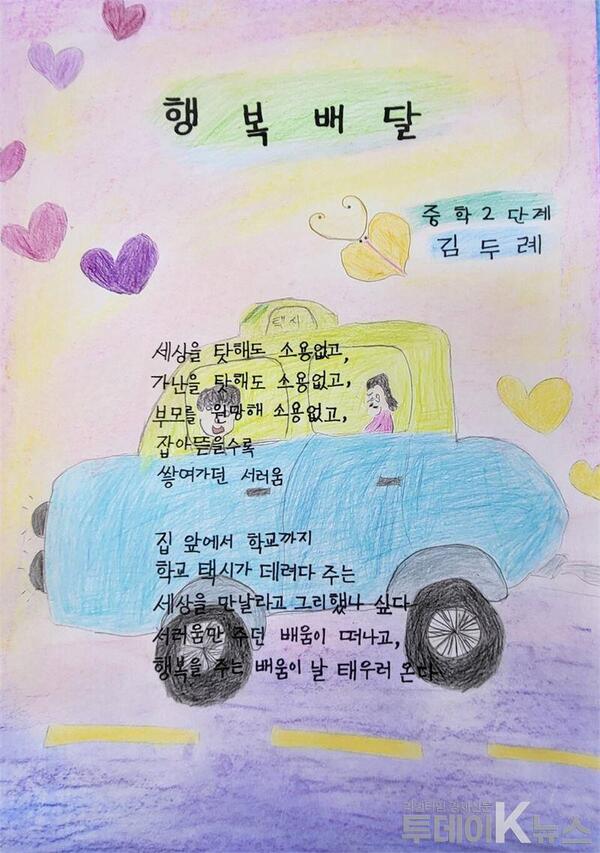 행복배달
중학2단계
김두례
택시
세상을 탓해도 소용없고,
가난을 탓해도 소용없고,
부모를 원망해 소용없고,
잡아뜯을수록
쌓여가던 서러움
집 앞에서 학교까지
학교 택시가 데려다 주는
세상을 만날라고 그리했나 싶다
서러움만 주던 배움이 떠나고,
행복을 주는 배움이 날 태우러 온다.
리얼타임 경제신문
투데이K뉴스